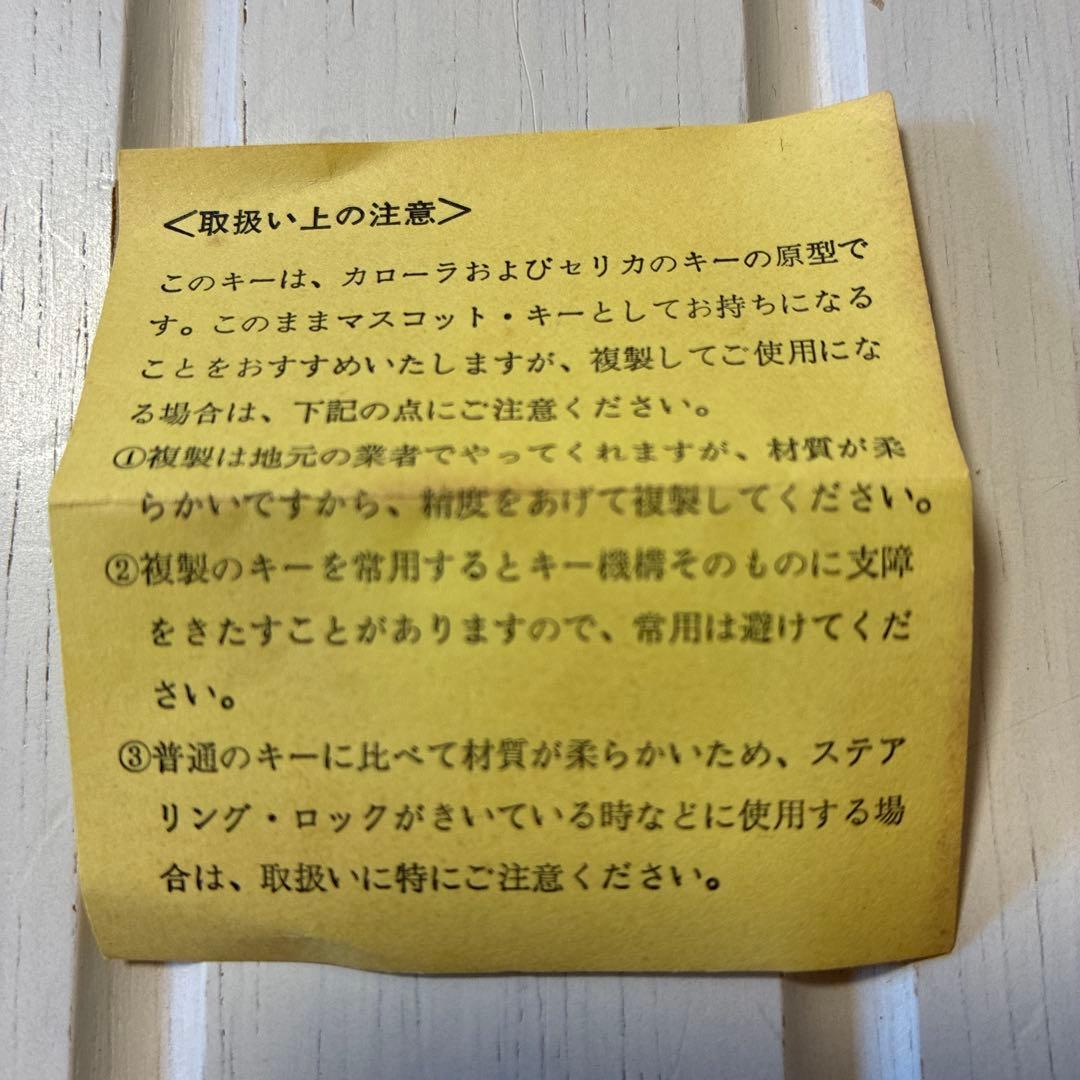 <取扱い上の注意>
このキーは、カローラおよびセリカのキーの原型で
す。このままマスコット・キーとしてお持ちになる
ことをおすすめいたしますが、複製してご使用にな
る場合は、下記の点にご注意ください。
①複製は地元の業者でやってくれますが、材質が柔
らかいですから、精度をあげて複製してください。
②複製のキーを常用するとキー機構そのものに支障
をきたすことがありますので、常用は避けてくだ
さい。
③普通のキーに比べて材質が柔らかいため、ステア
リング・ロックがきいている時などに使用する場
合は、取扱いに特にご注意ください。